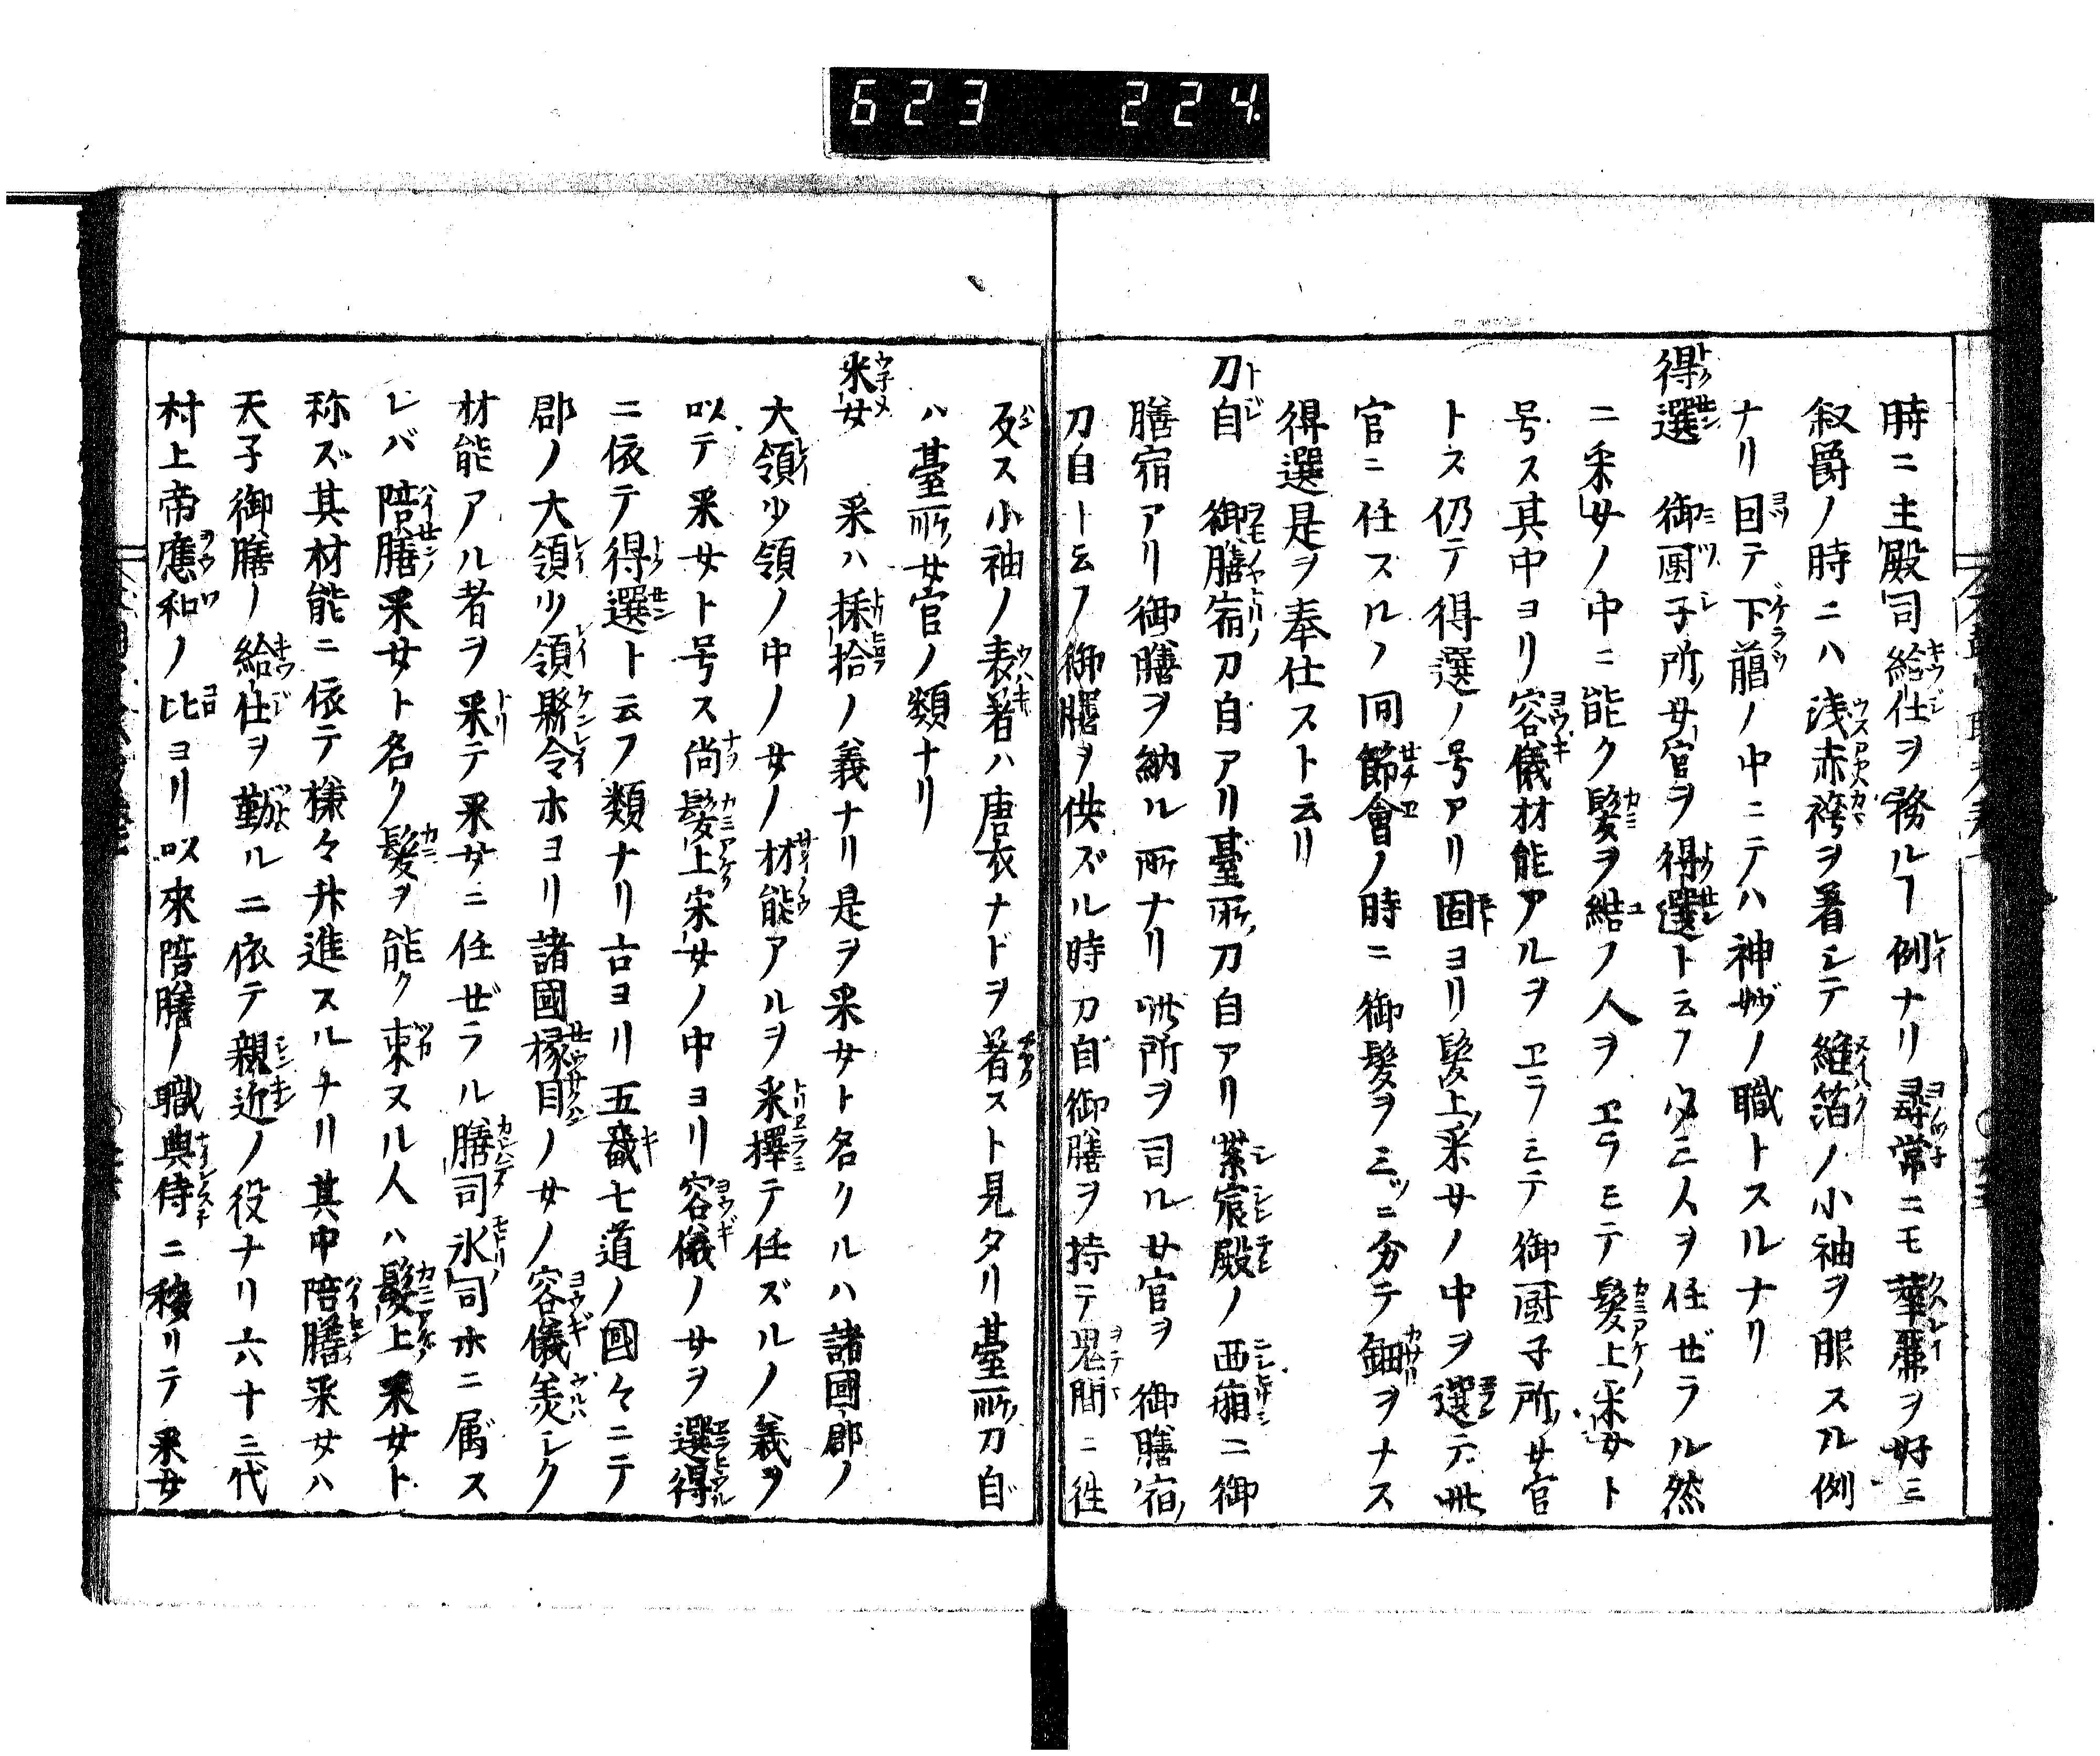 623 224.
時ニ主殿司給仕ヲ務ルヿ例ナリ尋常ニモ華麗ヲ好ミ
叙爵ノ時ニハ浅赤袴ヲ著シテ縫箔ノ小袖ヲ服スル例
ナリ因テ下臈ノ中ニテハ神妙ノ職トスルナリ
得選 御厨子所ノ女官ヲ得選ト云フ定三人ヲ任ゼラル然
ニ采女ノ中ニ能ク髪ヲ結フ人ヲヱラモテ髪上采女ト
号ス其中ヨリ容儀材能アルヲヱラミテ御厨子所ノ女官
トス仍テ得選ノ号アリ固ヨリ髪上ノ采女ノ中ヲ選テ此
官ニ任スルノ間節會ノ時ニ御髪ヲ三ツニ分テ鈿ヲナス
得選是ヲ奉仕スト云リ
刀自 御膳宿ノ刀自アリ臺所ノ刀自アリ紫宸殿ノ西廂ニ御
膳宿アリ御膳ヲ納ル所ナリ此所ヲ司ル女官ヲ御膳宿ノ
刀自ト云フ御膳ヲ供ズル時刀自御膳ヲ持テ鬼間ニ徃
反ス小袖ノ表著ハ唐衣ナドヲ著スト見タリ臺所ノ刀自
ハ臺所ノ女官ノ類ナリ
采女 采ハ採拾ノ義ナリ是ヲ采女ト名クルハ諸國郡ノ
大領少領ノ中ノ女ノ材能アルヲ采擇テ任ズルノ義ヲ
以テ采女ト号ス尚髪上采女ノ中ヨリ容儀ノ女ヲ選得
ニ依テ得選ト云フ類ナリ古ヨリ五畿七道ノ國々ニテ
郡ノ大領少領縣令ホヨリ諸國掾目ノ女ノ容儀羙シク
材能アル者ヲ采テ采女ニ任ゼラル膳司水司ホニ属ス
レバ陪膳采女ト名ク髪ヲ能ク束ヌル人ハ髪上采女ト
称ズ其材能ニ依テ様々升進スルナリ其中陪膳采女ハ
天子御膳ノ給仕ヲ勤ルニ依テ親近ノ役ナリ六十三代
村上帝應和ノ比ヨリ以來陪膳ノ職典侍ニ移リテ采女